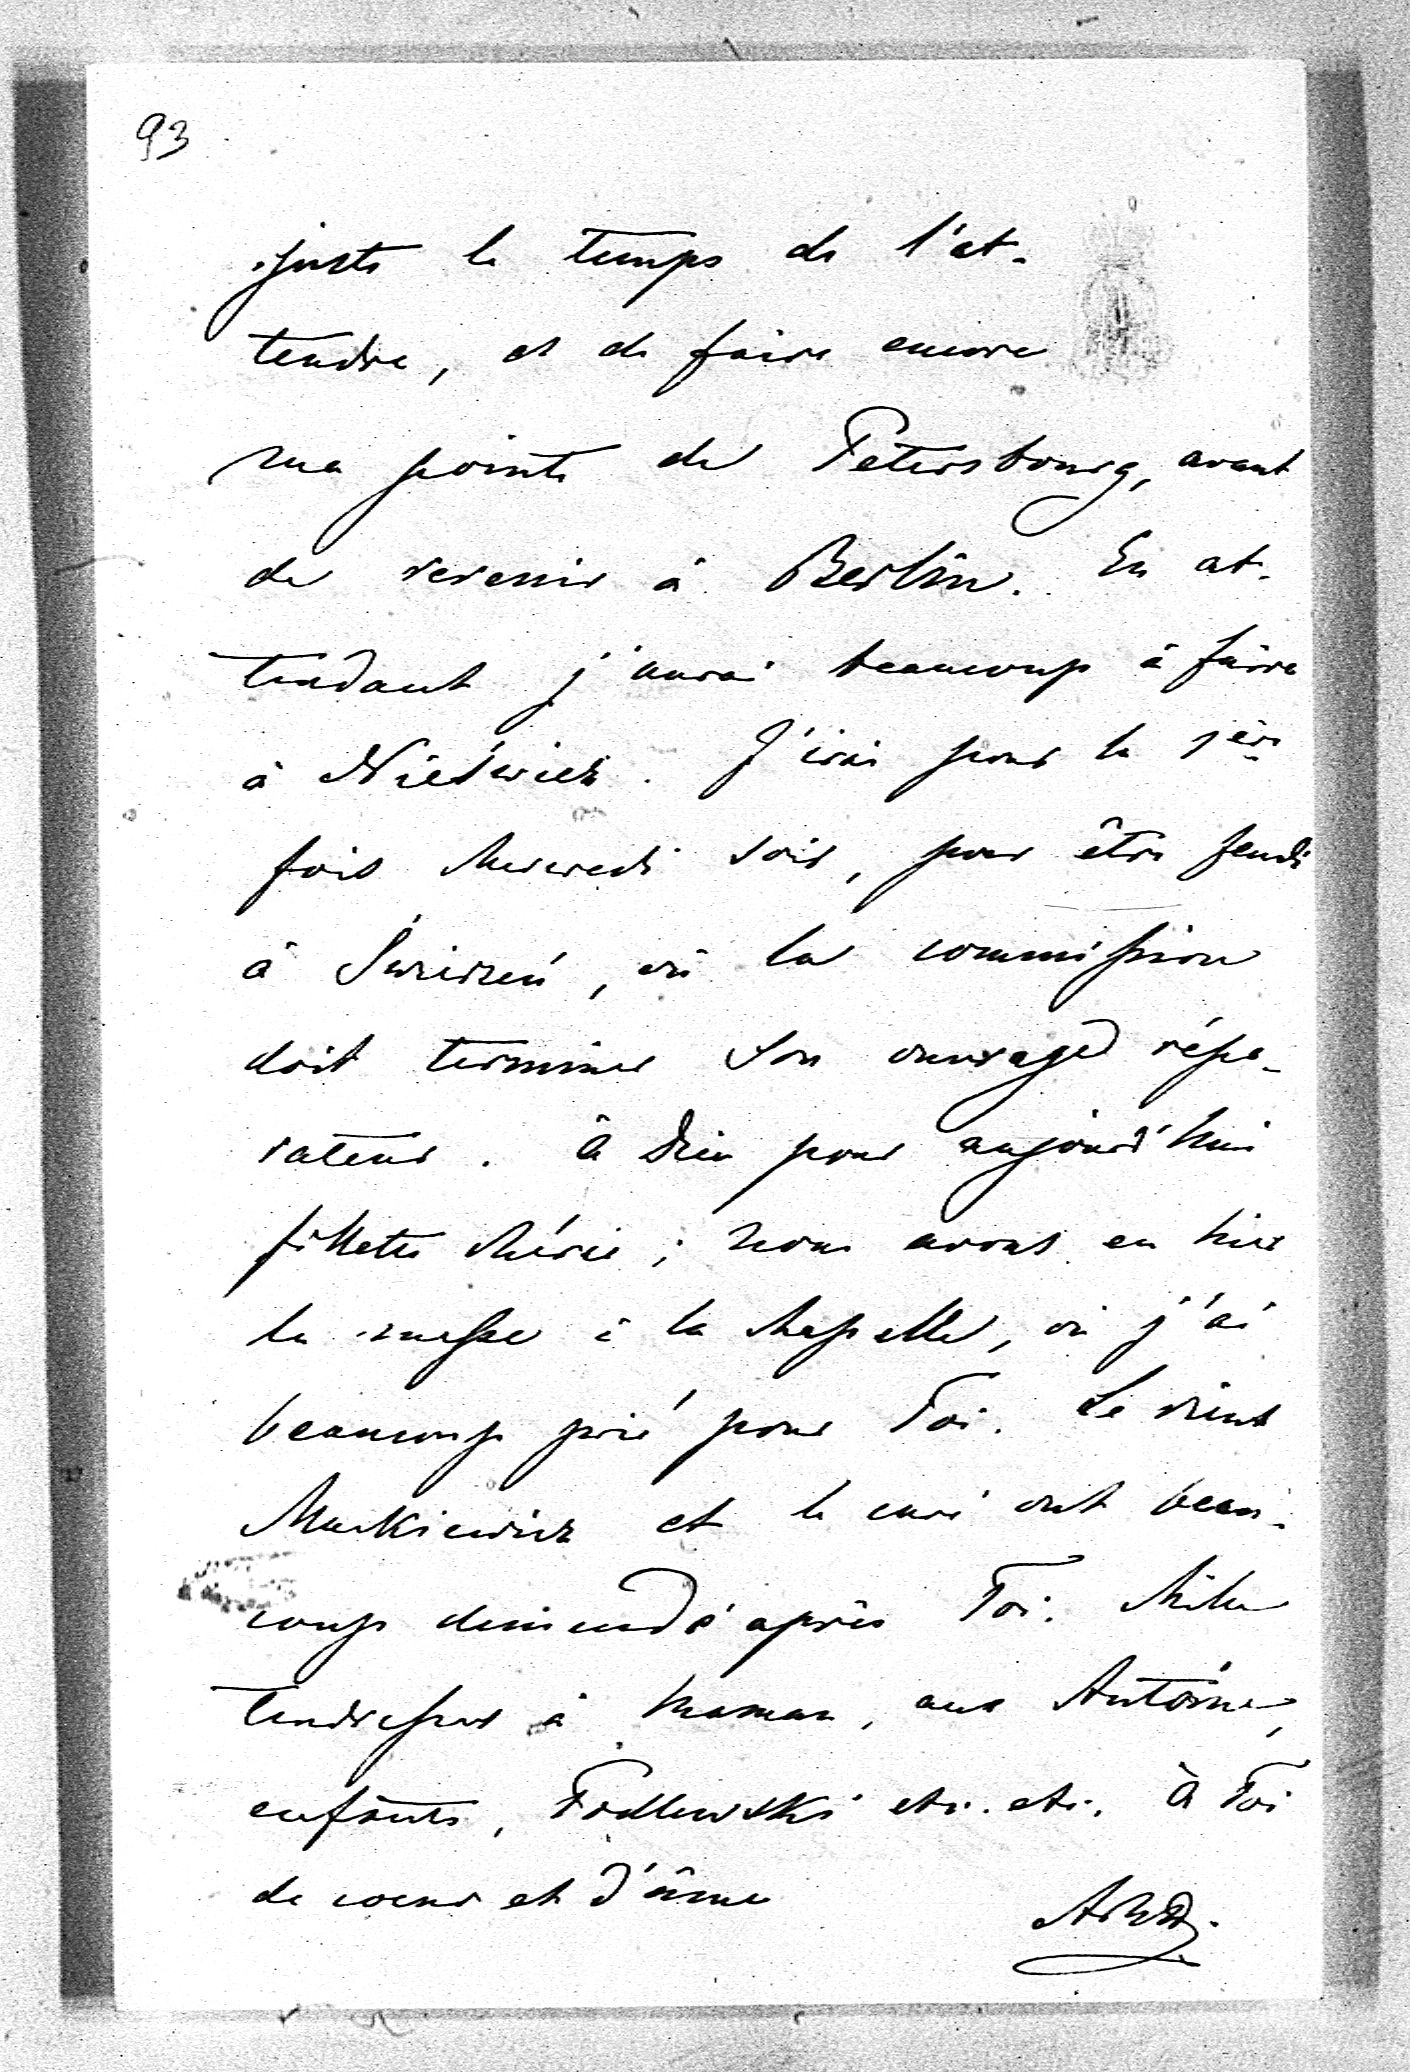 93
juste le temps de l'at-
tendre, et de faire encore
une pointe de Petersbourg, avant
de revenir à Berlin. En at-
tendant j'aurai beaucoup à faire
à Nieśwież. J'irai pour la 1ère
fois Mercredi soir, pour être Jeudi
à, où la commission
doit terminer son ouvrage répa-
rateur. à Dieu pour aujourd'hui
fillette chérie; nous avons eu hier
la messe à la chapelle, où j'ai
beaucoup prié pour Toi. Le vieux
Mackiewicz et le curé ont beau-
coup demandé après Toi. Mille
tendresses à Maman, aux Antoine,
enfants, etc. etc. à Toi
de coeur et d'âme